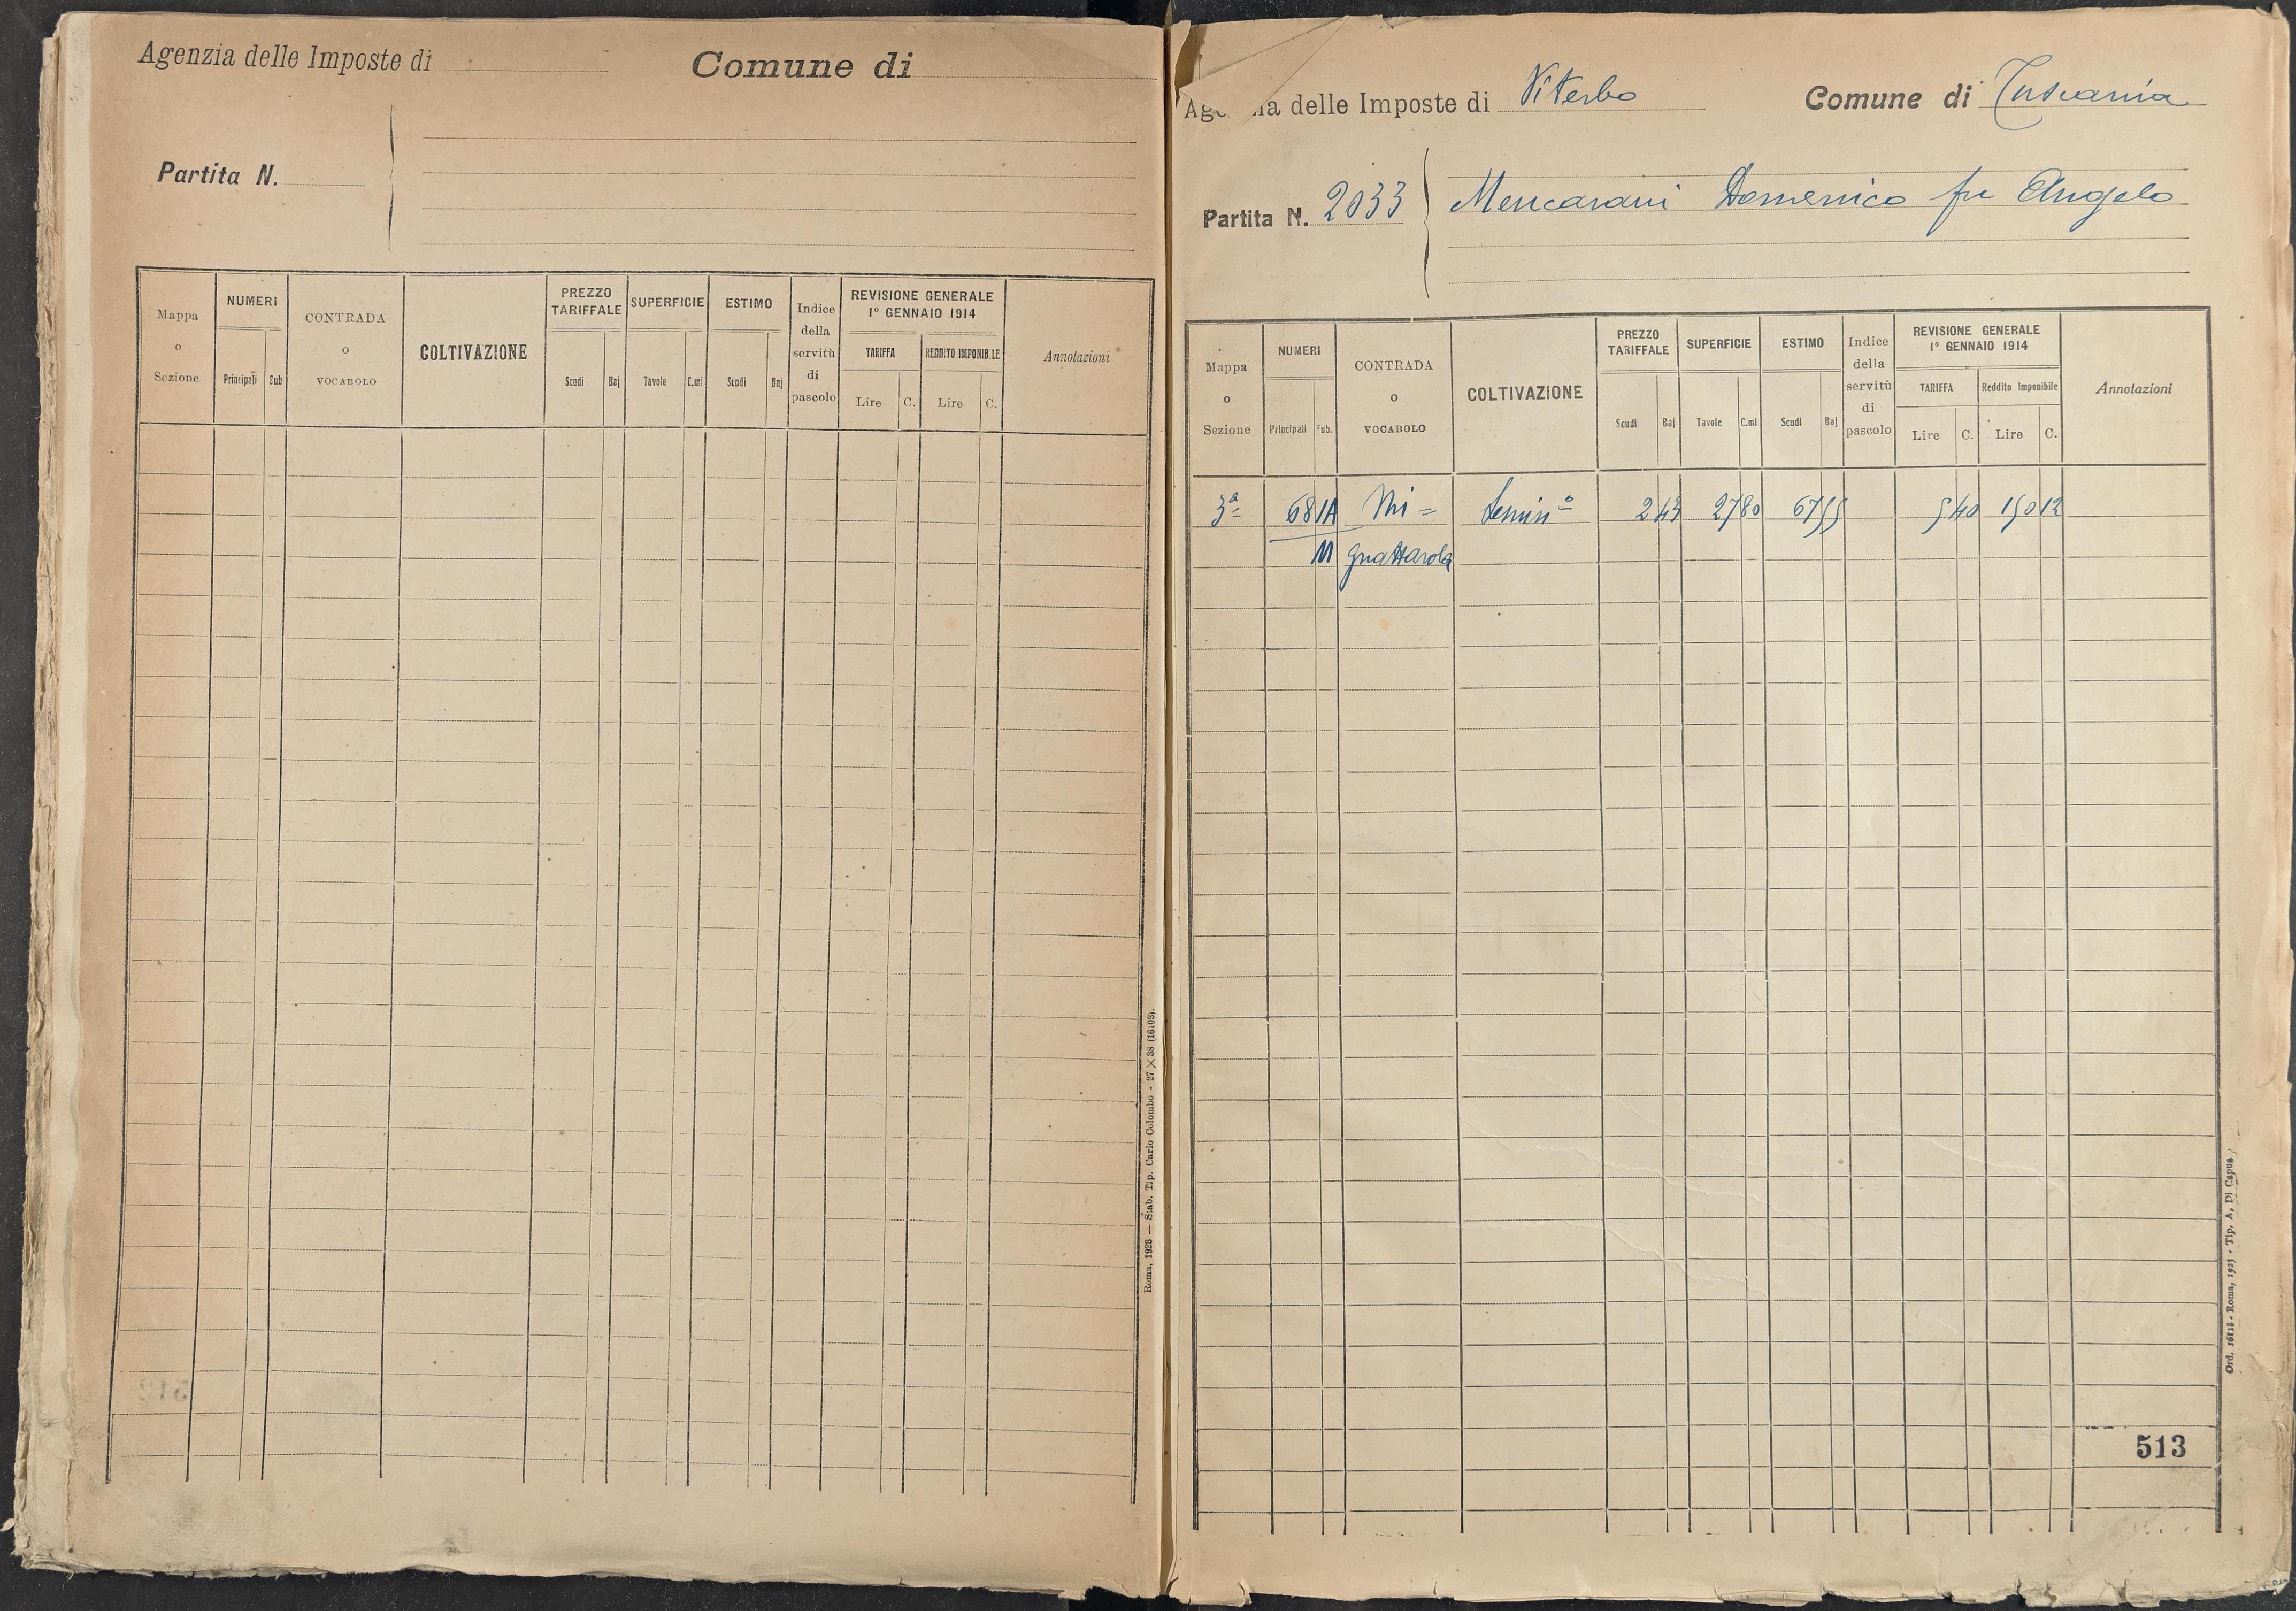 Agenzia delle Imposte di
Comune di
Partita N.
Mappa o Sezione
NUMERI
Principali
Sub
CONTRADA o VOCABOLO
COLTIVAZIONE
PREZZO TARIFFALE
Scudi
Baj
SUPERFICIE
Tavole
C.mi
ESTIMO
Scudi
Baj
Indice della servitù di pascolo
REVISIONE GENERALE
1° GENNAIO 1914
TARIFFA
Lire
C.
REDDITO IMPONIBILE
Lire
C.
Annotazioni
Roma, 1928 — Stab. Tip. Carlo Colombo - 27 X 38 (16103).
delle Imposte di Viterbo
Comune di Tuscania
Partita N. 2033
Mencarani Domenico fu Angelo
Mappa o Sezione
NUMERI
Principali
Sub.
CONTRADA o VOCABOLO
COLTIVAZIONE
PREZZO TARIFFALE
Scudi
Baj
SUPERFICIE
Tavole
C.mi
ESTIMO
Scudi
Baj
Indice della servitù di pascolo
REVISIONE GENERALE
1° GENNAIO 1914
TARIFFA
Lire
C.
Reddito Imponibile
Lire
C.
Annotazioni
3ª 681A Mi= Semin° 2 43 27 80 67 55 5 40 150 12
11 gnattarola
513
Tip. A. Di Capua